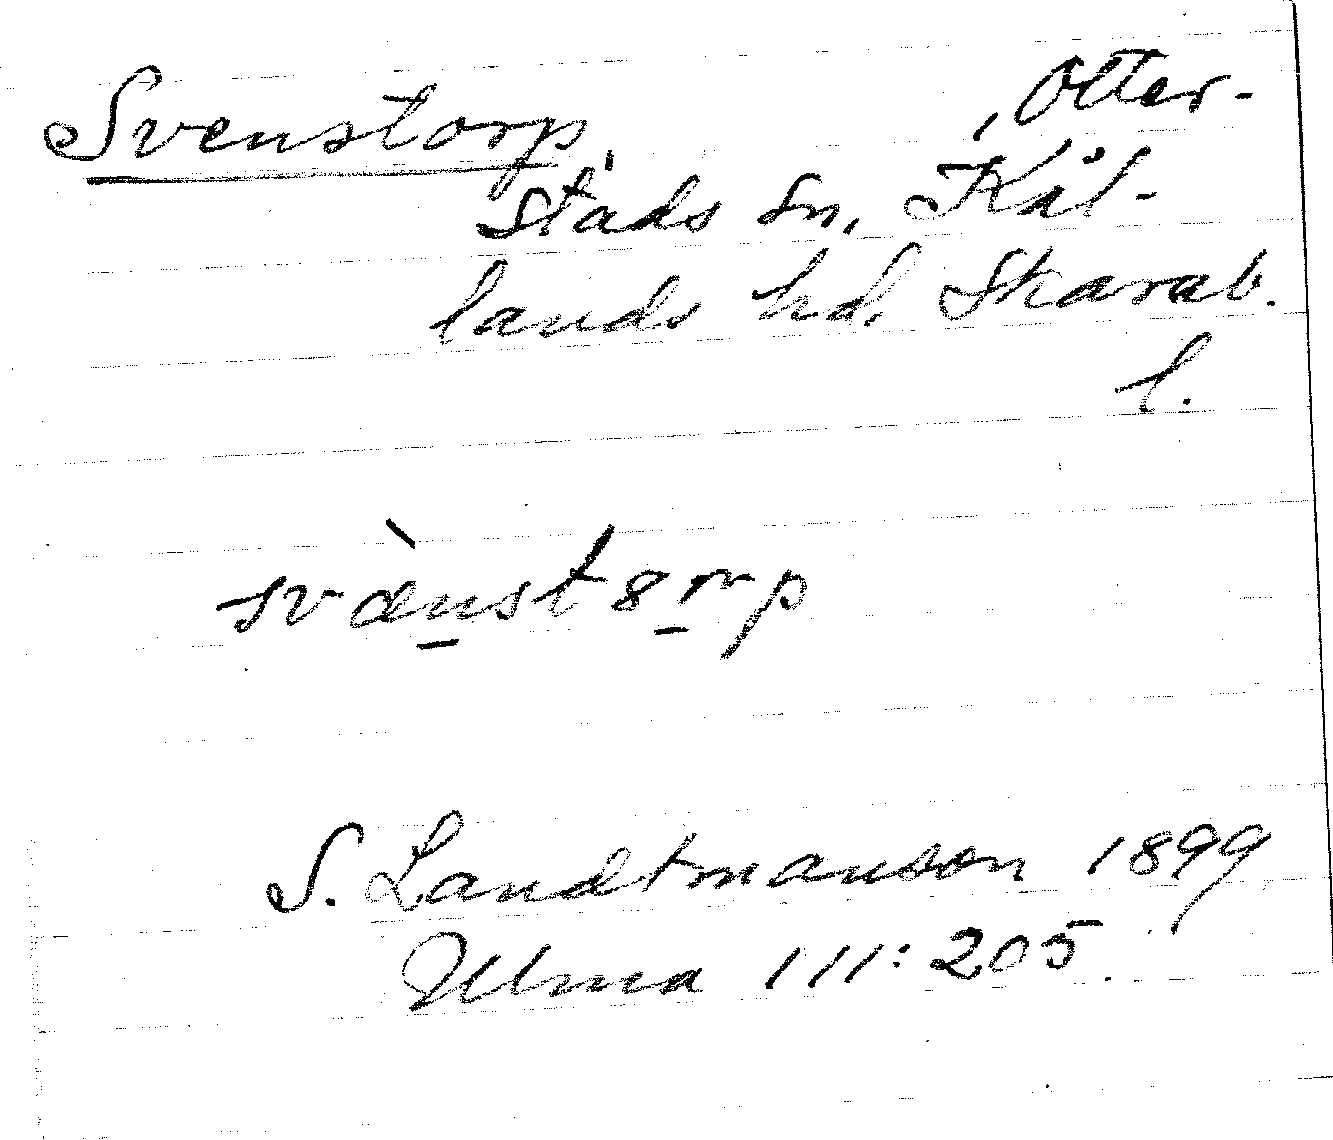 Svenstorp, Otter-
stads sn, Kål-
lands hd. Skarab.
l.
svæ̀nstꞷrp
S. Landtmanson 1899
Ulma 111:205.